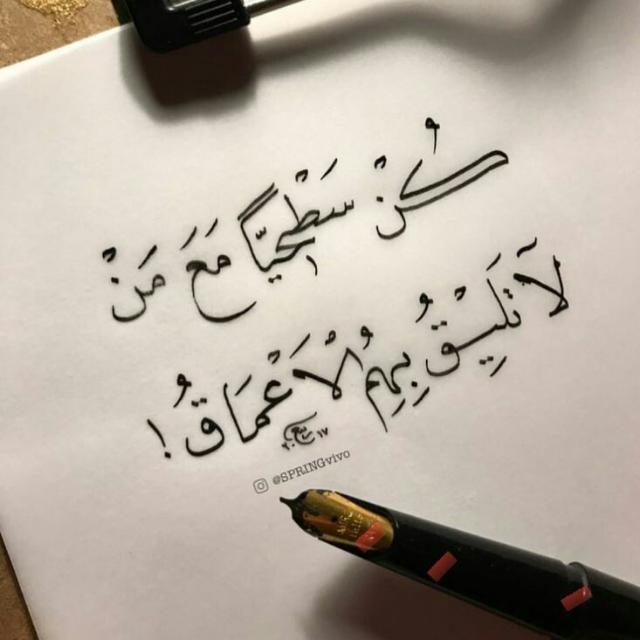 كُنْ سَطْحِيًّا مَعَ مَنْ
لَا تَلِيْقُ بِهِمُ الْأَعْمَاقُ !
ربيع ٢٠١٧
@SPRINGvivo